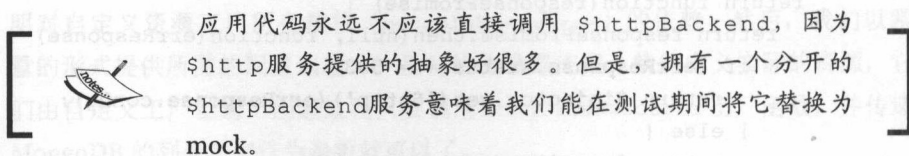 应用代码永远不应该直接调用 $httpBackend，因为
$http服务提供的抽象好很多。但是，拥有一个分开的
$httpBackend服务意味着我们能在测试期间将它替换为
mock。